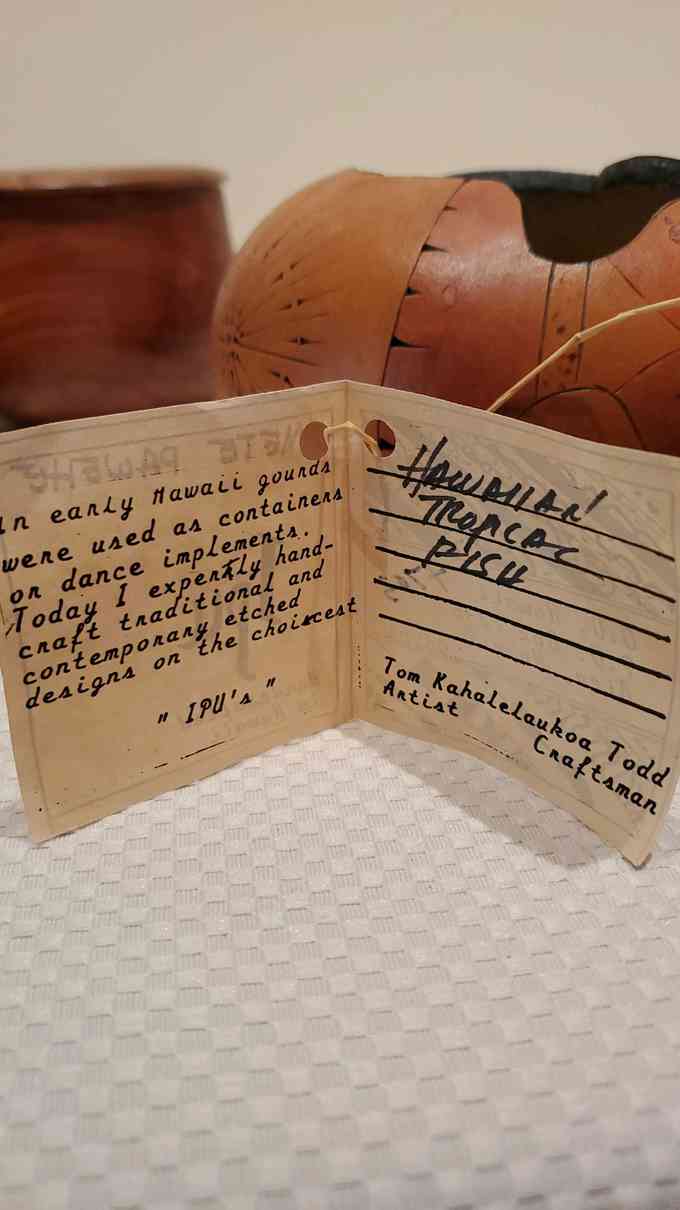 In early Hawaii gourds
were used as containers
or dance implements.
Today I expertly hand-
craft traditional and
contemporary etched
designs on the choiscest
" IPU's "
HAWAIIAN
TROPICAL
FISH
Tom Kahalelaukoa Todd
Artist
Craftsman